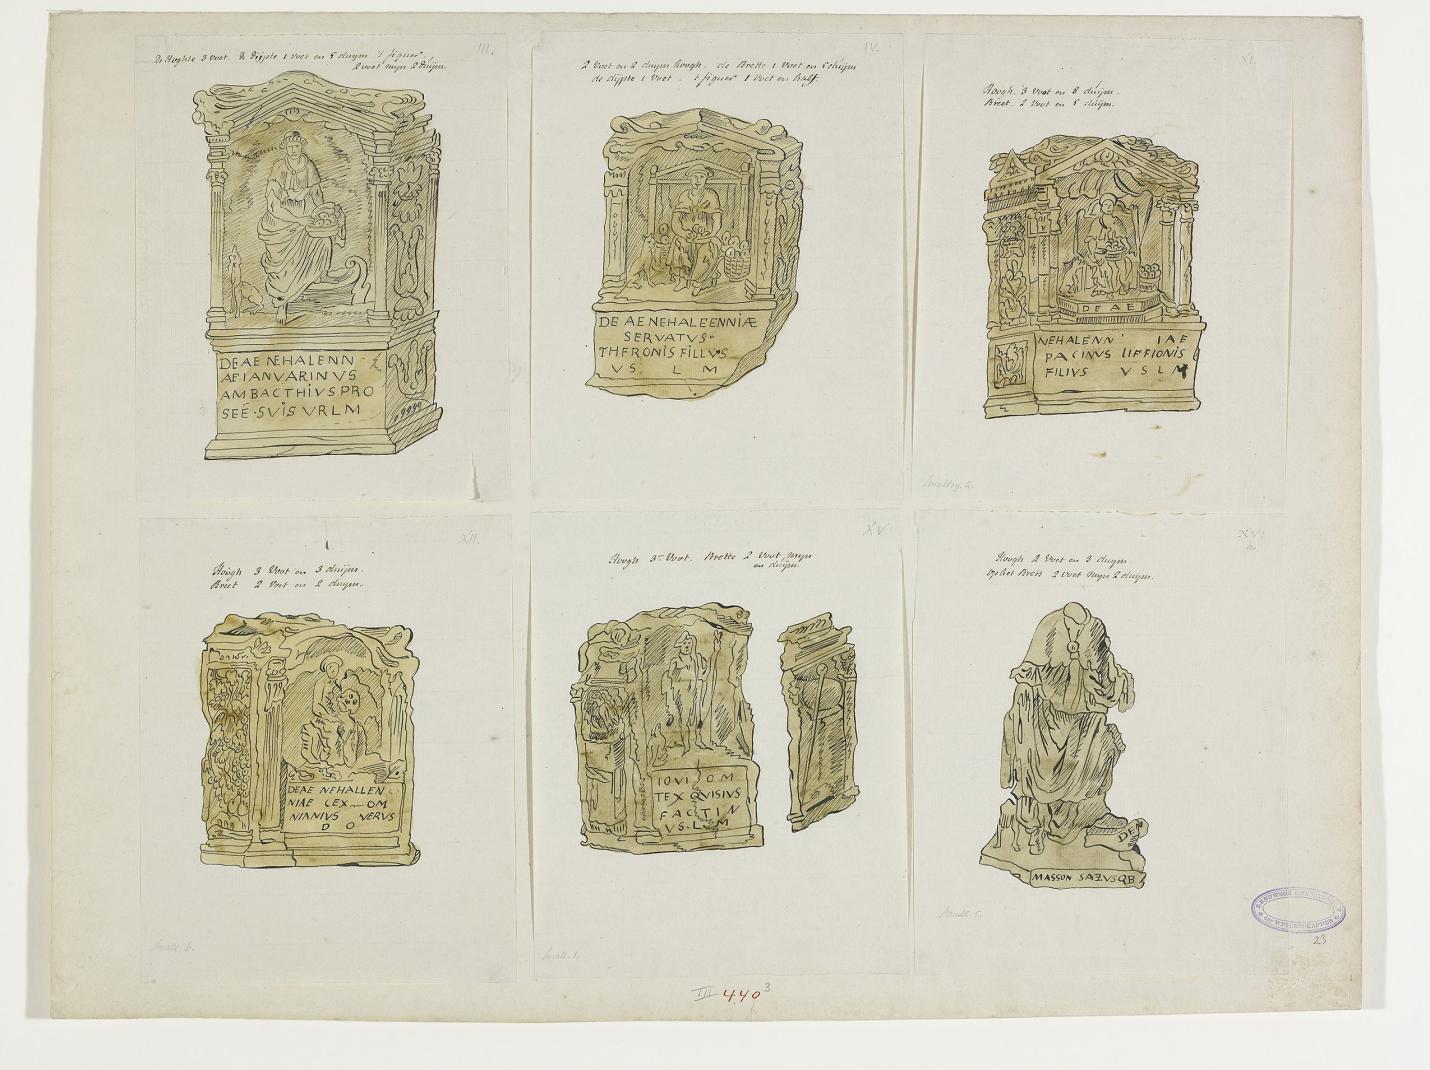 III.
De Hoghte 3 voet. de Dijpte 1 voet en 5 duijm 't figuer
2 voet mijn 2 duijm.
DEAE NEHALENN
AEIANVARINVS
AMBACTHIVS PRO
SEÉ·SVIS VRLM
IV.
2 Voet en 2 duijm hoogh. de Brette 1 Voet en 5 duijm
de dijpte 1 Voet. t figuer 1 Voet en half
DE AE NEHALEENNIÆ
SERVATVS·
THFRONIS FILLVS
VS L M
XI.
Hoogh. 3 Voet en 8 duijm.
Breet. 2 Voet en 5 duijm.
DEAE
NEHALENN IAE
PACINVS LIFFIONIS
FILIVS V S L M
Smalleg. 2.
XII.
Hoogh 3 Voet en 3 duijm.
Breet 2 Voet en 2 duijm.
DEAE NEHALLEN
NIAE LEX OM
NIANIVS VERVS
D O
Small. 6.
XV
Hoogh 3 Voet. Brette 2 Voet mijn
en duijm.
IOVI OM
TEX QVISIVS
FACT IN
VS·LM
Small. 1.
XVI
a.
Hoogh 2 Voet en 3 duijm
op het Brets 2 voet mijn 2 duijm.
DEN
MASSON SAZVSQB
Small. 5.
ZEEUWSCH GENOOTSCHAP
der WETENSCHAPPEN
23
III 440 3